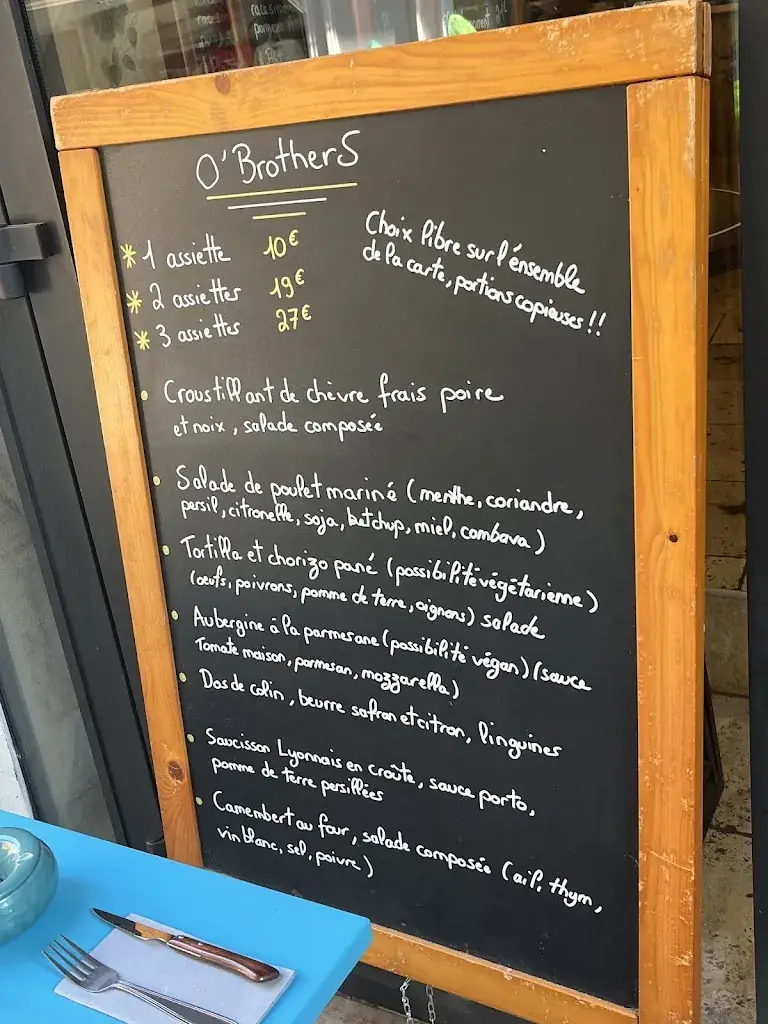 O'BrotherS
* 1 assiette 10€
* 2 assiettes 19€
* 3 assiettes 27€
Choix libre sur l'énsemble
de la carte, portions copieuses !!
• Croustillant de chèvre frais poire
et noix, salade composée
• Salade de poulet mariné (menthe, coriandre,
persil, citronelle, soja, ketchup, miel, combava)
• Tortilla et chorizo pané (possibilité végétarienne)
(oeufs, poivrons, pomme de terre, oignons) salade
• Aubergine à la parmesane (possibilité végan) (sauce
Tomate maison, parmesan, mozzarella)
• Dos de colin, beurre safran et citron, linguines
• Saucisson Lyonnais en croûte, sauce porto,
pomme de terre persillées
• Camembert au four, salade composée (ail, thym,
vin blanc, sel, poivre)